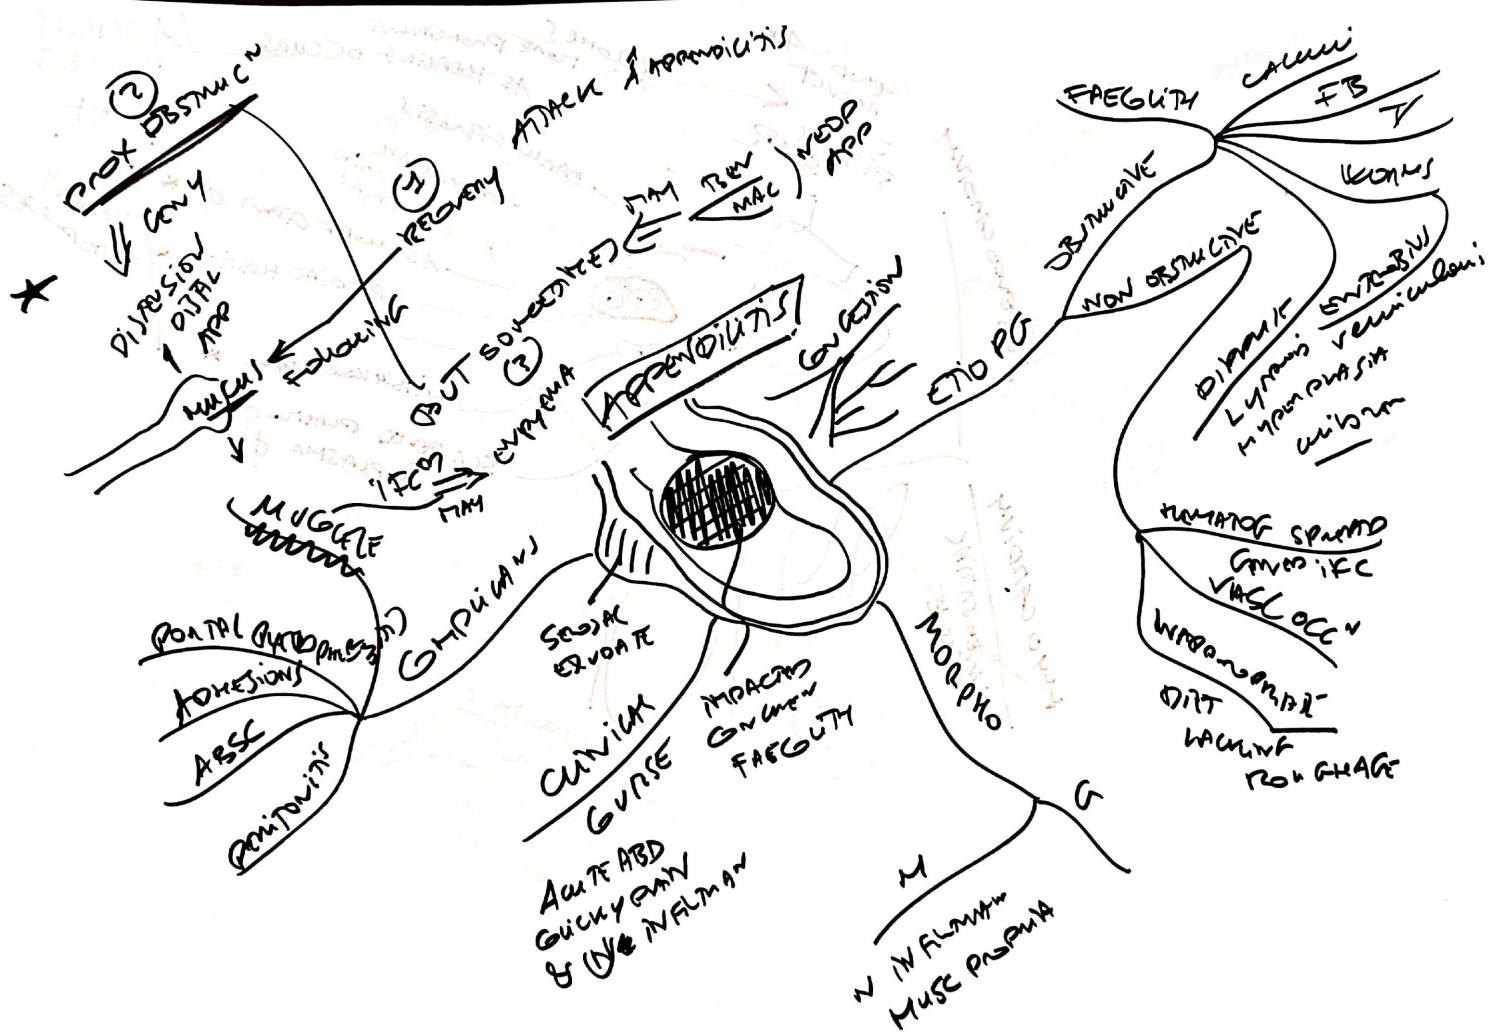 APPENDICITIS
CONGESTION
ETIO PG
OBSTRUCTIVE
FAECOLITH
CALCULI
FB
T
WORMS
ENTEROBIUS
Vermiculari
DIFFUSE
LYMPHO
HYPERPLASIA
NON OBSTRUCTIVE
HEMATOG SPREAD
GENER IFC
VASC OCCN
INAPPROPRIATE
DIET
LACKING
ROUGHAGE
MORPHO
G
M
N INFILTRAN
MUSC PROPRIA
IMPACTED
FAECOLITH
SEROSAL
EXUDATE
CLINICAL
COURSE
ACUTE ABD
COLICKY PAIN
& N INFILTRAN
COMPLICANS
PORTAL
ADHESIONS
ABSC
PERITONITIS
MUCOCELE
IFCN
MAY
EMPYEMA
MUCUS
FOLLOWING
① RECOVERY
ATTACK
APPENDICITIS
② PROX OBSTRUCN
GENY
DISTENSION
DISTAL
APP
BUT SOMETIMES
③
MAY
BEN
MAL
NEOP
APP